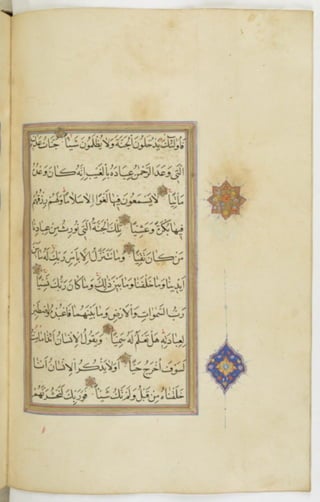 فَأُولَٰئِكَ يَدْخُلُونَ الْجَنَّةَ وَلَا يُظْلَمُونَ شَيْئًا جَنَّاتِ عَدْنٍ
الَّتِي وَعَدَ الرَّحْمَٰنُ عِبَادَهُ بِالْغَيْبِ إِنَّهُ كَانَ وَعْدُهُ
مَأْتِيًّا لَا يَسْمَعُونَ فِيهَا لَغْوًا إِلَّا سَلَامًا وَلَهُمْ رِزْقُهُمْ
فِيهَا بُكْرَةً وَعَشِيًّا تِلْكَ الْجَنَّةُ الَّتِي نُورِثُ مِنْ عِبَادِنَا
مَنْ كَانَ تَقِيًّا وَمَا نَتَنَزَّلُ إِلَّا بِأَمْرِ رَبِّكَ لَهُ مَا بَيْنَ
أَيْدِينَا وَمَا خَلْفَنَا وَمَا بَيْنَ ذَٰلِكَ وَمَا كَانَ رَبُّكَ نَسِيًّا
رَبُّ السَّمٰوَاتِ وَالْأَرْضِ وَمَا بَيْنَهُمَا فَاعْبُدْهُ وَاصْطَبِرْ
لِعِبَادَتِهِ هَلْ تَعْلَمُ لَهُ سَمِيًّا وَيَقُولُ الْإِنْسَانُ أَئِذَا مَا مِتُّ
لَسَوْفَ أُخْرَجُ حَيًّا أَوَلَا يَذْكُرُ الْإِنْسَانُ أَنَّا
خَلَقْنَاهُ مِنْ قَبْلُ وَلَمْ يَكُ شَيْئًا فَوَرَبِّكَ لَنَحْشُرَنَّهُمْ